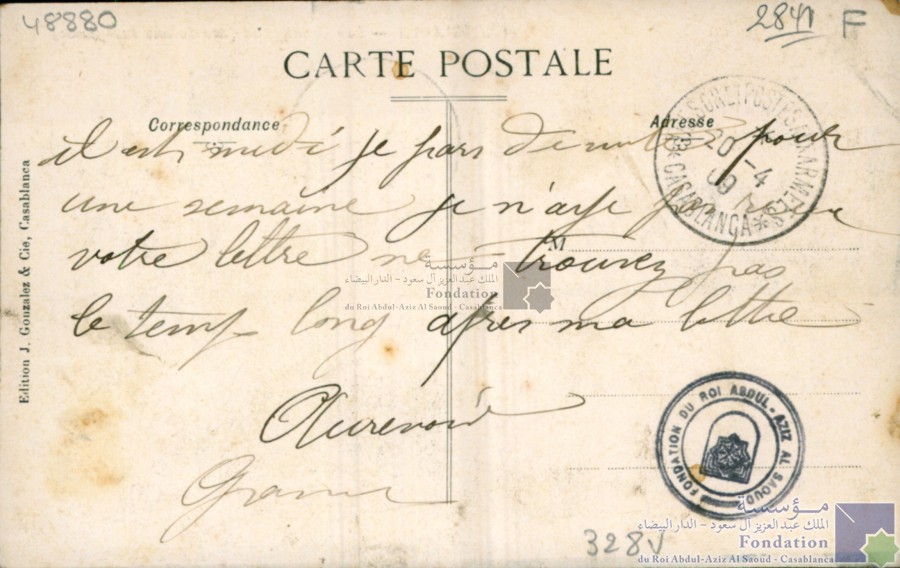 48880
2841 F
CARTE POSTALE
Correspondance
Adresse
TRÉSOR ET POSTES AUX ARMÉES
20 - 4
09
* CASABLANCA *
il est midi je pars de suite pour
une semaine je n'aye pas
votre lettre ne trouvez pas
le temp long apres ma lettre
Aurevoir
M
Edition J. Gonzalez & Cie, Casablanca
مؤسسة
الملك عبد العزيز آل سعود - الدار البيضاء
Fondation
du Roi Abdul-Aziz Al Saoud - Casablanca
FONDATION DU ROI ABDUL-AZIZ AL SAOUD
328V
مؤسسة
الملك عبد العزيز آل سعود - الدار البيضاء
Fondation
du Roi Abdul-Aziz Al Saoud - Casablanca